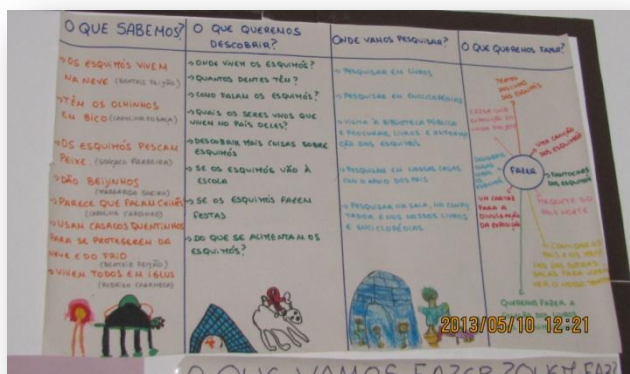 O QUE SABEMOS?
→OS ESQUIMÓS VIVEM
NA NEVE (BEATRIZ FEIJÃO)
→TÊM OS OLHINHOS
EM BICO (CAROLINA
→OS ESQUIMÓS PESCAM
PEIXE.
→DÃO BEIJINHOS
(MARGARIDA
→PARECE QUE FALAM CHINÊS
(CAROLINA CARDOSO)
→USAM CASACOS QUENTINHOS
PARA SE PROTEGEREM DA
NEVE E DO FRIO
(BEATRIZ FEIJÃO)
→VIVEM TODOS EM IGLUS
(RODRIGO
O QUE QUEREMOS
DESCOBRIR?
→ONDE VIVEM OS ESQUIMÓS?
→QUANTOS DENTES TÊM?
→COMO FALAM OS ESQUIMÓS?
→QUAIS OS SERES VIVOS QUE
VIVEM NO PAÍS DELES?
→DESCOBRIR MAIS COISAS SOBRE
ESQUIMÓS
→SE OS ESQUIMÓS VÃO À
ESCOLA
→SE OS ESQUIMÓS FAZEM
FESTAS
→DO QUE SE ALIMENTAM OS
ESQUIMÓS?
ONDE VAMOS PESQUISAR?
→PESQUISAR EM LIVROS
→PESQUISAR EM ENCICLOPÉDIAS
→VISITA À BIBLIOTECA PÚBLICA
E PROCURAR LIVROS E
DOS ESQUIMÓS
→PESQUISAR EM NOSSAS CASAS
COM O APOIO DOS PAIS
→PESQUISAR NA SALA, NO COMPU
TADOR E NOS NOSSOS LIVROS
E ENCICLOPÉDIAS
O QUE QUEREMOS FAZER?
DOS ESQUIMÓS
UMA CANÇÃO
DOS ESQUIMÓS
FAZER
FANTOCHES DOS ESQUIMÓS
UM CARTAZ
PARA A
DIVULGAÇÃO
DA EXPOSIÇÃO
QUEREMOS FAZER A
2013/05/10 12:21
O QUE VAMOS FAZER?